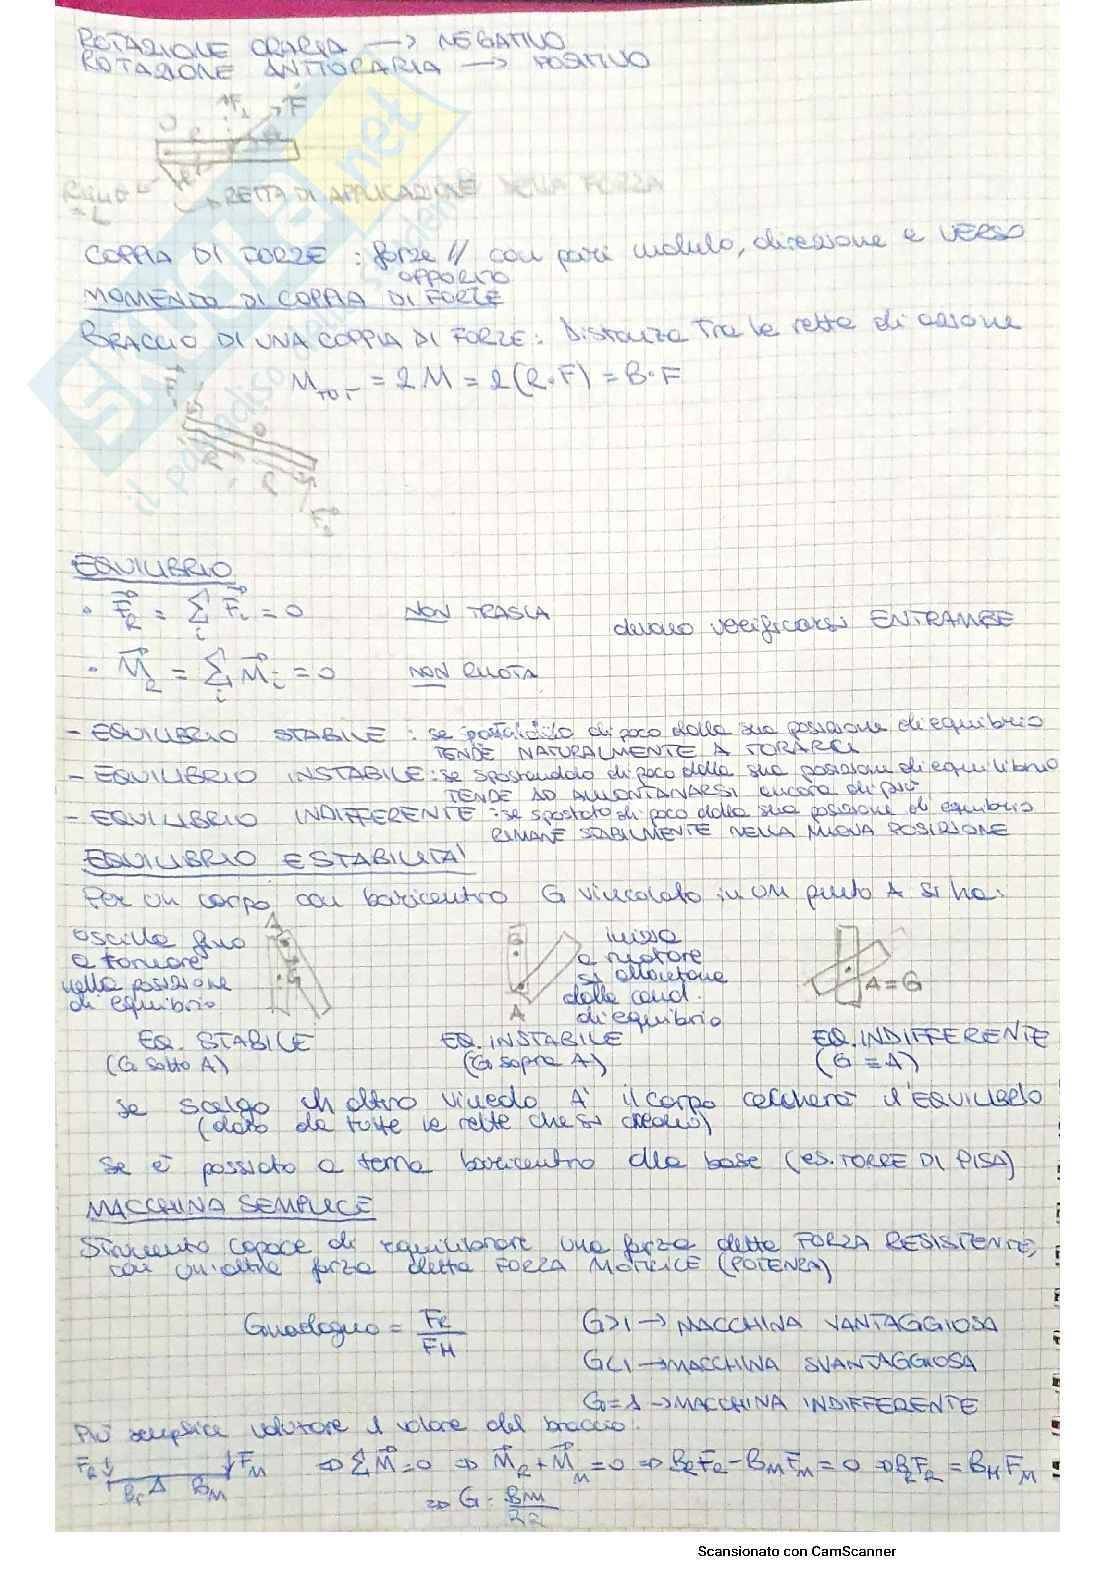 ROTAZIONE ORARIA → NEGATIVO
ROTAZIONE ANTIORARIA → POSITIVO
F⊥ F
O
R
RETTA DI APPLICAZIONE DELLA FORZA
COPPIA DI FORZE : forze // con pari modulo, direzione e VERSO
OPPOSTO
MOMENTO DI COPPIA DI FORZE
BRACCIO DI UNA COPPIA DI FORZE: Distanza tra le rette di azione
M_TOT = 2M = 2(R·F) = B·F
EQUILIBRIO
• F_R = Σ_i F_i = 0 NON TRASLA
devono verificarsi ENTRAMBE
• M_R = Σ_i M_i = 0 NON RUOTA
- EQUILIBRIO STABILE : se spostandolo di poco dalla sua posizione di equilibrio
TENDE NATURALMENTE A TORNARCI
- EQUILIBRIO INSTABILE : se spostandolo di poco dalla sua posizione di equilibrio
TENDE AD ALLONTANARSI ancora di più
- EQUILIBRIO INDIFFERENTE : se spostato di poco dalla sua posizione di equilibrio
RIMANE STABILMENTE NELLA NUOVA POSIZIONE
EQUILIBRIO E STABILITA'
Per un corpo con baricentro G vincolato in un punto A si ha:
oscilla fino
a tornare
nella posizione
di equilibrio
A
G
A
inizia
a ruotare
si allontana
dalla cond.
di equilibrio
A = G
EQ. STABILE EQ. INSTABILE EQ. INDIFFERENTE
(G sotto A) (G sopra A) (G ≡ A)
se scelgo un altro vincolo A' il corpo cercherà l'EQUILIBRIO
(dato da tutte le rette che si creano)
se è poggiato a terra baricentro alla base (es. TORRE DI PISA)
MACCHINA SEMPLICE
Strumento capace di equilibrare una forza detta FORZA RESISTENTE,
con un'altra forza detta FORZA MOTRICE (POTENZA)
Guadagno = F_R / F_M
G>1 → MACCHINA VANTAGGIOSA
G<1 → MACCHINA SVANTAGGIOSA
G=1 → MACCHINA INDIFFERENTE
Più semplice valutare il valore del braccio:
F_R F_M B_R B_M ⇒ ΣM = 0 ⇒ M_R + M_M = 0 ⇒ B_R F_R - B_M F_M = 0 ⇒ B_R F_R = B_M F_M
⇒ G = B_M / B_R
SKUOLA.net
il paradiso dello studente
Scansionato con CamScanner